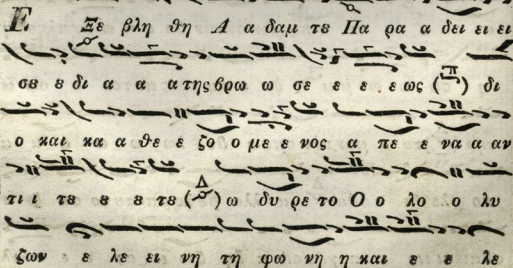 Ε Ξε βλη θη Α α δαμ τε Πα ρα α δει ει ει
σε ε δι α α α της βρω ω σε ε ε ε ως (π) δι
ο και κα α θε ε ζο ο με ε νος α πε ε να α αν
τι ι τε ε ε τε (Δ) ω δυ ρε το Ο ο λο ο λυ
ζων ε ε λε ει νη τη φω νη η και ε ε λε